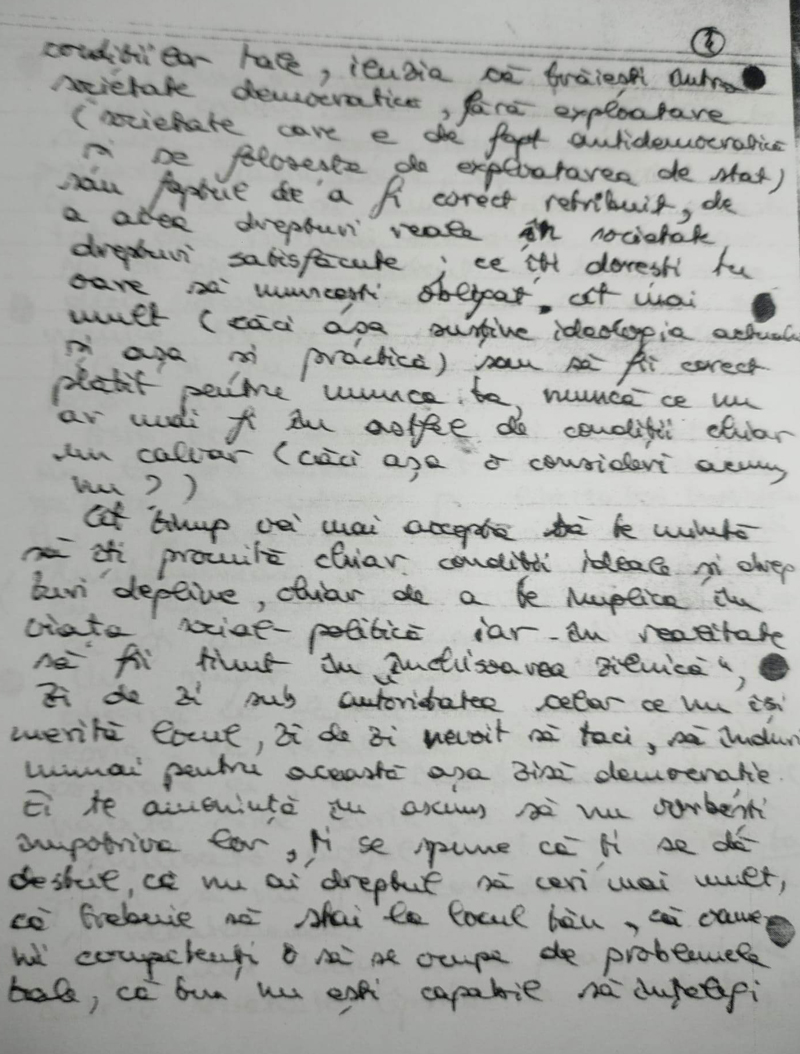 condițiilor tale, iluzia că trăiești într-o
societate democratică, fără exploatare
(societate care e de fapt antidemocratică
și se folosește de exploatarea de stat)
sau faptul de a fi corect retribuit, de
a avea drepturi reale în societate,
drepturi satisfăcute; ce îți dorești tu
oare să muncești obligat, cît mai
mult (căci așa susține ideologia actuală
și așa și practică) sau să fii corect
plătit pentru munca ta, muncă ce nu
ar mai fi în astfel de condiții chiar
un calvar (căci așa o consideri acum,
nu?)
Cît timp vei mai accepta să te mintă
să îți promită chiar condiții ideale și drep
turi depline, chiar de a te implica în
viața social-politică iar în realitate
să fii ținut în „închisoarea zilnică",
zi de zi sub autoritatea celor ce nu își
merită locul, zi de zi nevoit să taci, să înduri
numai pentru această așa zisă democrație.
Ei te amenință în ascuns să nu vorbești
împotriva lor, ți se spune că ți se dă
destul, că nu ai dreptul să ceri mai mult,
că trebuie să stai la locul tău, că oame
nii competenți o să se ocupe de problemele
tale, că tu nu ești capabil să înțelegi